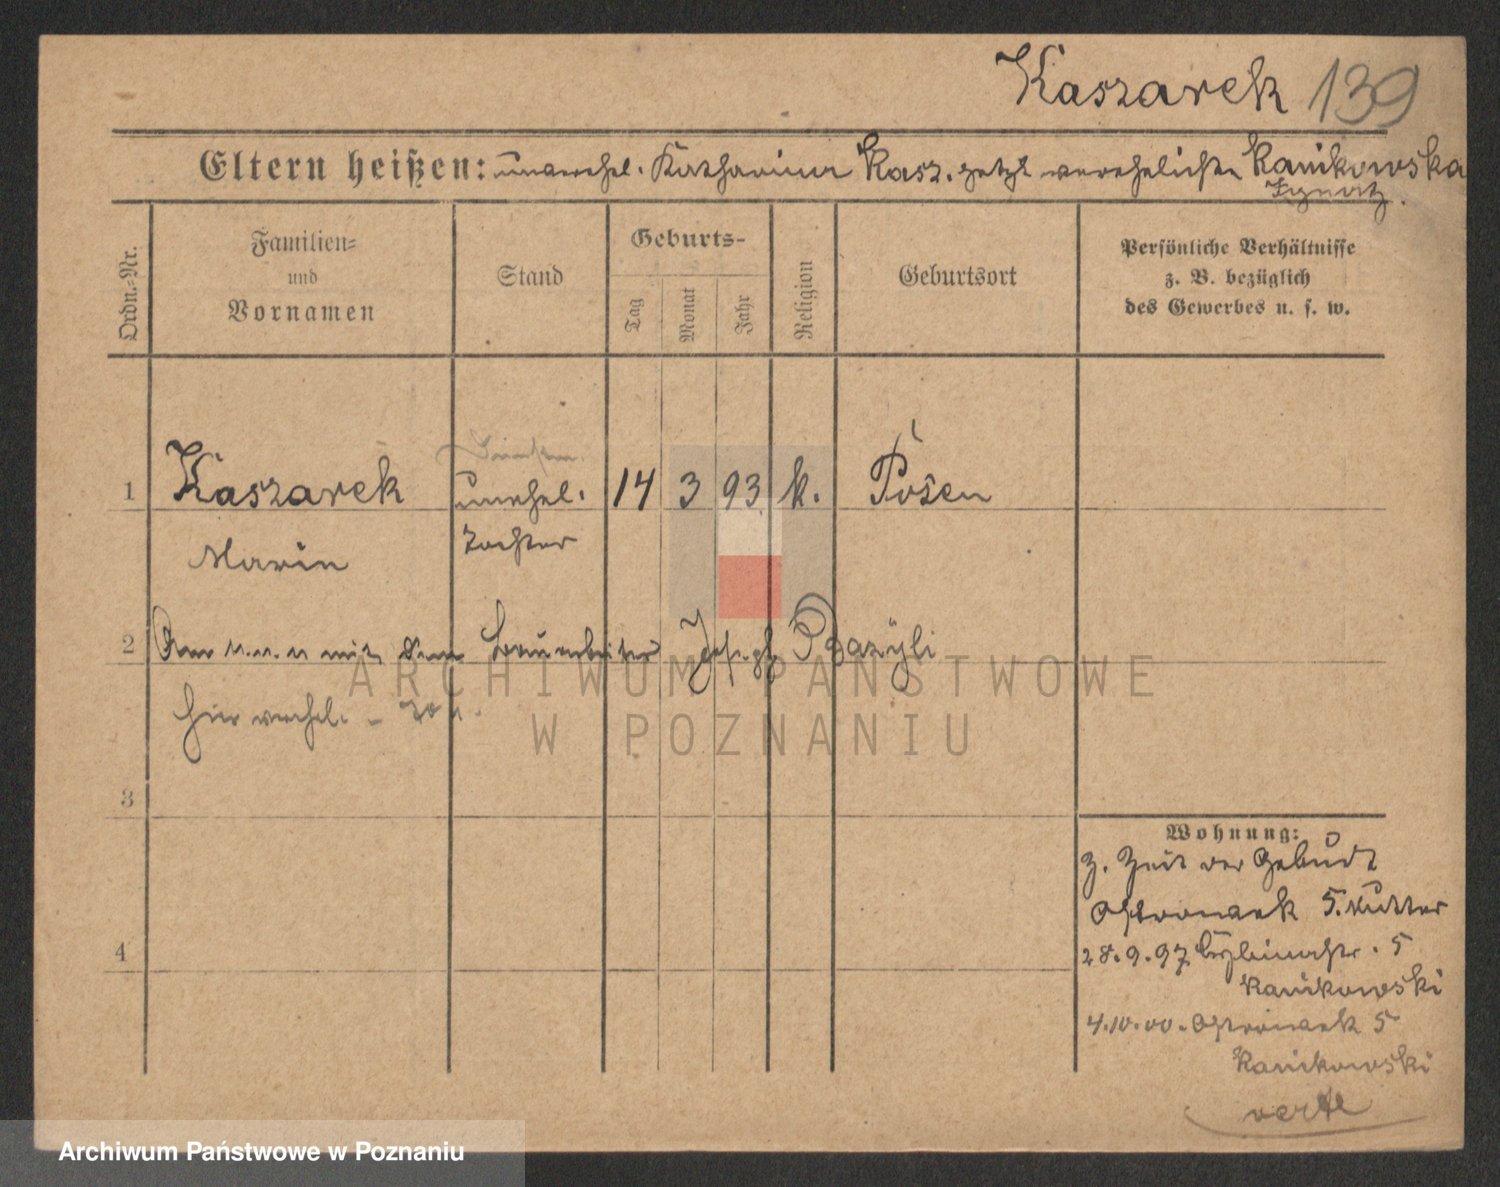 Kaszarek 139
Eltern heißen: unverehel. Katharina Kasz. jetzt verehelichte Kanikowska
Ignatz.
Ordn.-Nr.
Familien-
und
Vornamen
Stand
Geburts-
Tag
Monat
Jahr
Religion
Geburtsort
Persönliche Verhältnisse
z. B. bezüglich
des Gewerbes u. s. w.
1 Kaszarek unehel. 14 3 93 k. Posen
Maria Tochter
2 mit dem Josef
hier verehel.
3
4
Wohnung:
z. Zeit der Geburt
Ostrowek 5. Mutter
28.9.97 5
Kanikowski
4.10.00. Ostrowek 5
Kanikowski
verte
ARCHIWUM PAŃSTWOWE
W POZNANIU
Archiwum Państwowe w Poznaniu